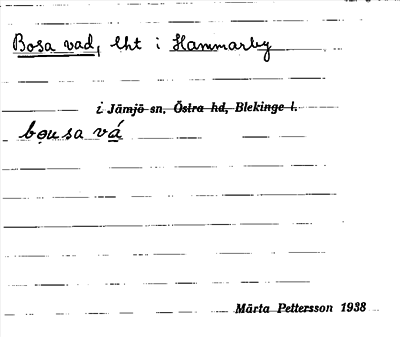 Bosa vad, lht i Hammarby
i Jämjö sn, Östra hd, Blekinge l.
bou̯sa vá
Märta Pettersson 1938